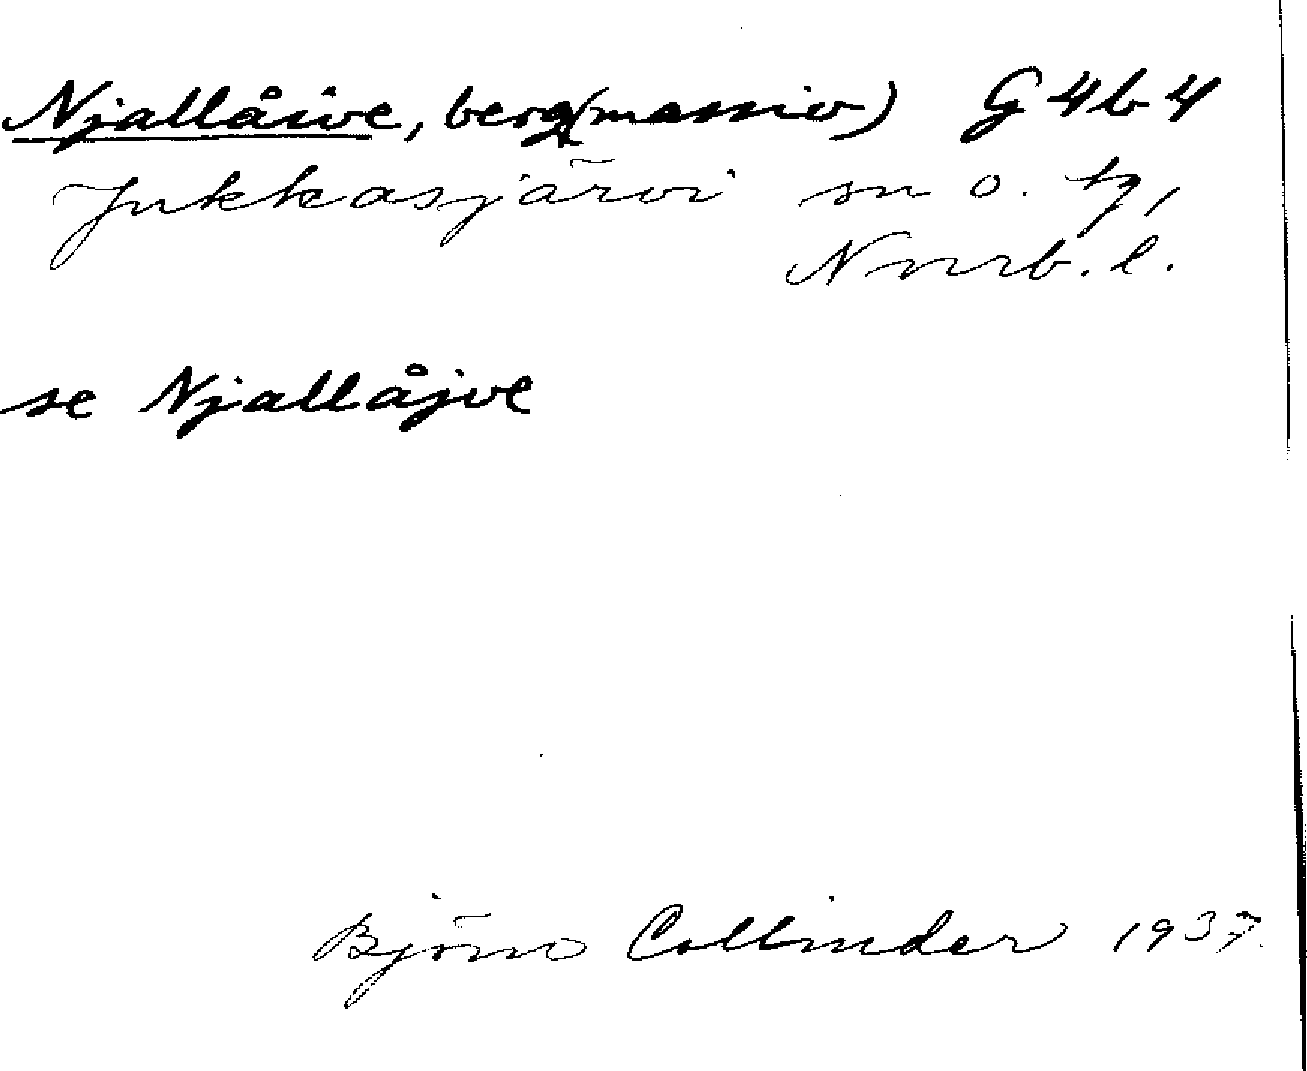 Njallåive, berg(massiv) G 4 b 4
Jukkasjärvi sn o. tg,
Nnrb. l.
se Njallåjve
Björn Collinder 1937.